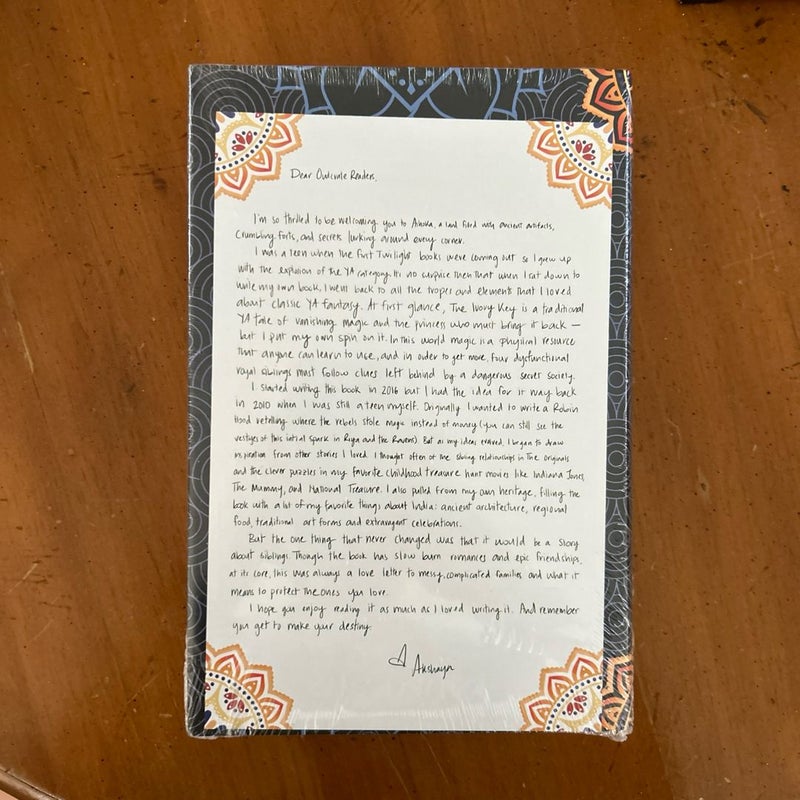 Dear Owlcrate Readers,
I'm so thrilled to be welcoming you to Ashoka, a land filled with ancient artifacts,
Crumbling forts, and secrets lurking around every corner.
I was a teen when the first Twilight books were coming out so I grew up
with the explosion of the YA category. It's no surprise then that when I sat down to
write my own book, I went back to all the tropes and elements that I loved
about classic YA fantasy. At first glance, The Ivory Key is a traditional
YA tale of vanishing magic and the princess who must bring it back —
but I put my own spin on it. In this world magic is a physical resource
that anyone can learn to use, and in order to get more, four dysfunctional
royal siblings must follow clues left behind by a dangerous secret society.
I started writing this book in 2016 but I had the idea for it way back
in 2010 when I was still a teen myself. Originally I wanted to write a Robin
Hood retelling where the rebels stole magic instead of money (you can still see the
vestiges of this initial spark in Riya and the Ravens). But as my ideas evolved, I began to draw
inspiration from other stories I loved. I thought often of the sibling relationships in The Originals
and the clever puzzles in my favorite childhood treasure hunt movies like Indiana Jones,
The Mummy, and National Treasure. I also pulled from my own heritage, filling the
book with a lot of my favorite things about India: ancient architecture, regional
food, traditional art forms and extravagant celebrations.
But the one thing that never changed was that it would be a story
about siblings. Though the book has slow burn romances and epic friendships,
at its core, this was always a love letter to messy, complicated families and what it
means to protect the ones you love.
I hope you enjoy reading it as much as I loved writing it. And remember
you get to make your destiny.
Akshaya